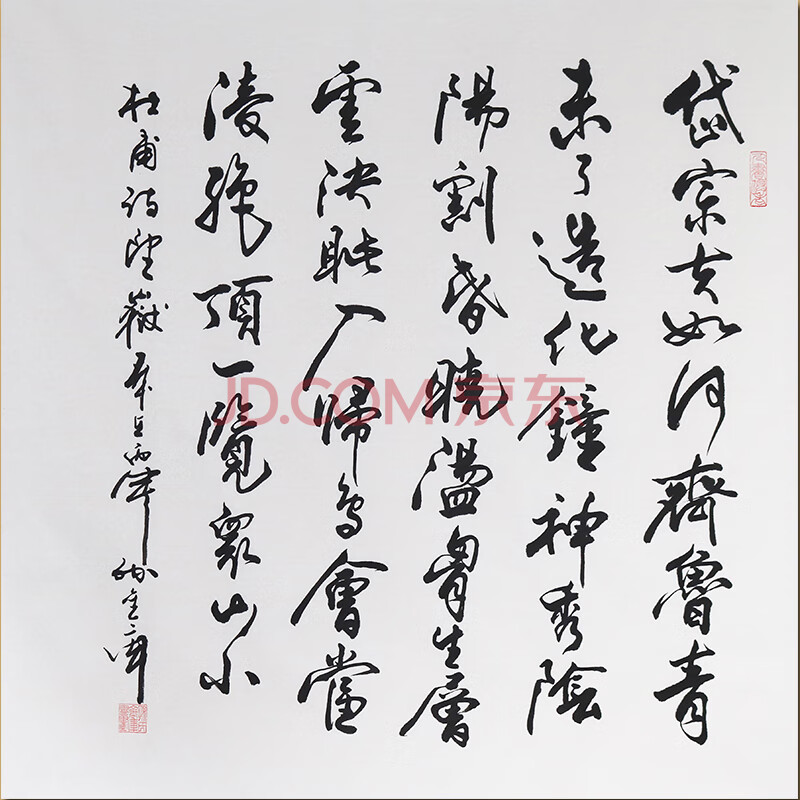 岱宗夫如何齊魯青
未了造化鐘神秀陰
陽割昏曉盪胷生層
雲決眥入歸鳥會當
淩絶頂一覽衆山小
杜甫詩望嶽
JD.COM 京东